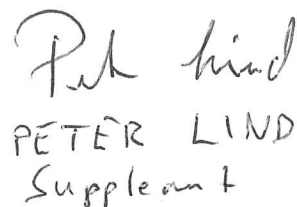 Peter Lind
PETER LIND
Suppleant